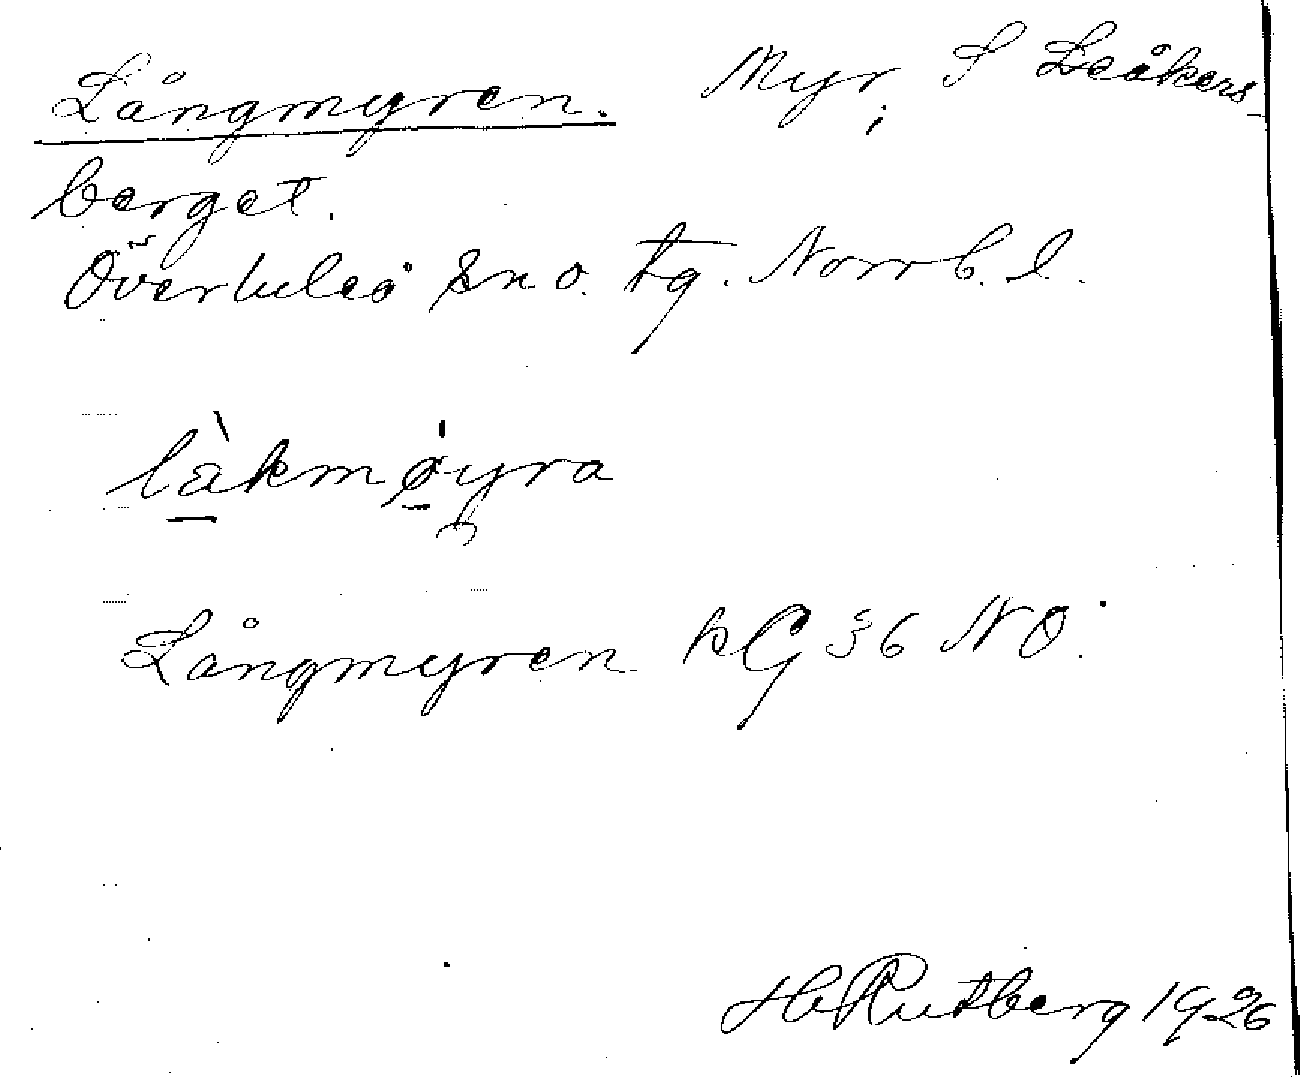 Långmyren. Myr, S Leåkers-
berget.
Överluleå sn o. tg. Norrb. l.
làkmøyra
Långmyren kG 36 NO.
H Rutberg 1926